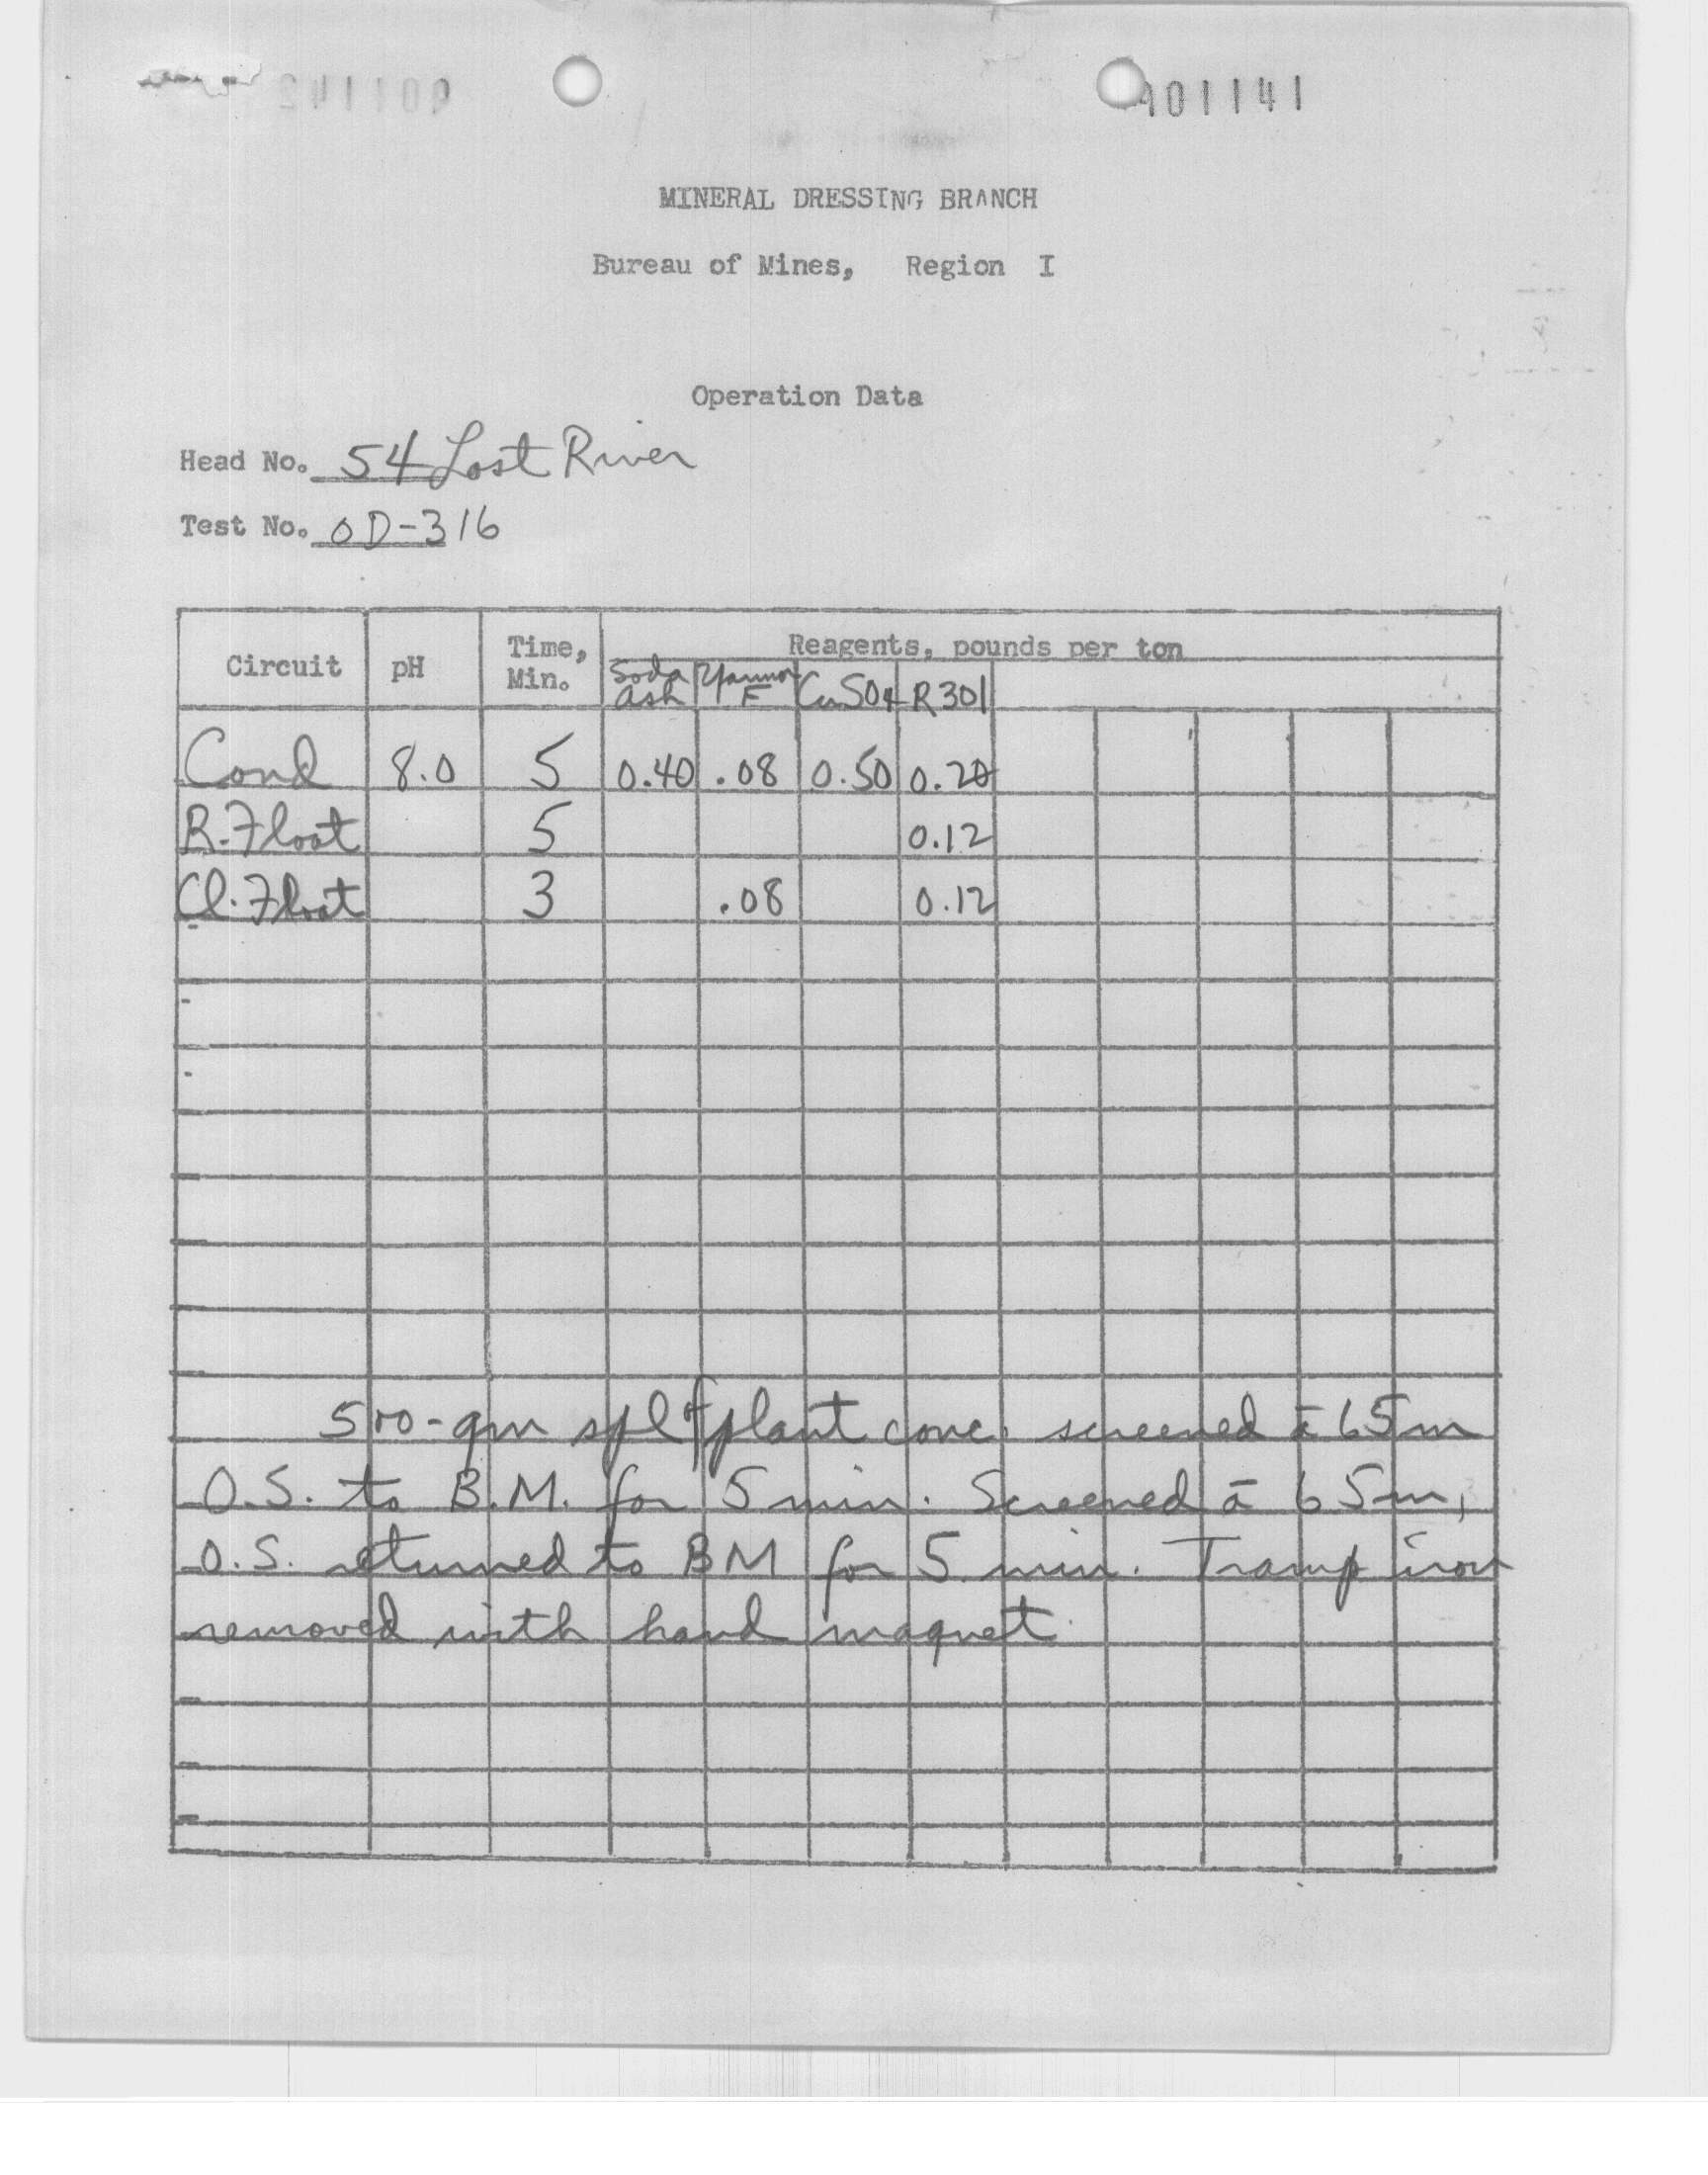 401141
MINERAL DRESSING BRANCH
Bureau of Mines, Region I
Operation Data
Head No. 54 Lost River
Test No. OD-316
Circuit pH Time, Min. Reagents, pounds per ton
Soda Ash Yarmor F CuSO4 R301
Cond 8.0 5 0.40 .08 0.50 0.20
R. Float 5 0.12
Cl. Float 3 .08 0.12
500-gm spl of plant conc. screened ā 65m
O.S. to B.M. for 5 min. Screened ā 65m,
O.S. returned to BM for 5 min. Tramp iron
removed with hand magnet.